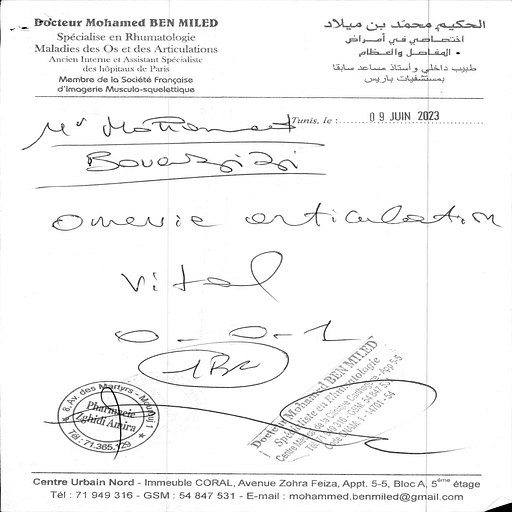 Docteur Mohamed BEN MILED
Spécialise en Rhumatologie
Maladies des Os et des Articulations
Ancien Interne et Assistant Spécialiste
des hôpitaux de Paris
Membre de la Société Française
d'Imagerie Musculo-squelettique
الحكيم محمّد بن ميلاد
اختصاصي في أمراض
المفاصل والعظام
طبيب داخلي وأستاذ مساعد سابقا
بمستشفيات باريس
Tunis, le : 09 JUIN 2023
Mr Mohamed
Bouazizi
omevie articulation
vital
0-0-1
8, Av. des Martyrs - Mourouj 1
Pharmacie
Zghidi Amira
Tél: 71.365.129
Docteur Mohamed BEN MILED
Spécialiste en Rhumatologie
Centre Urbain Nord - Immeuble CORAL, Avenue Zohra Feiza, Appt. 5-5, Bloc A, 5ème étage
Tél : 71 949 316 - GSM : 54 847 531 - E-mail : mohammed.benmiled@gmail.com